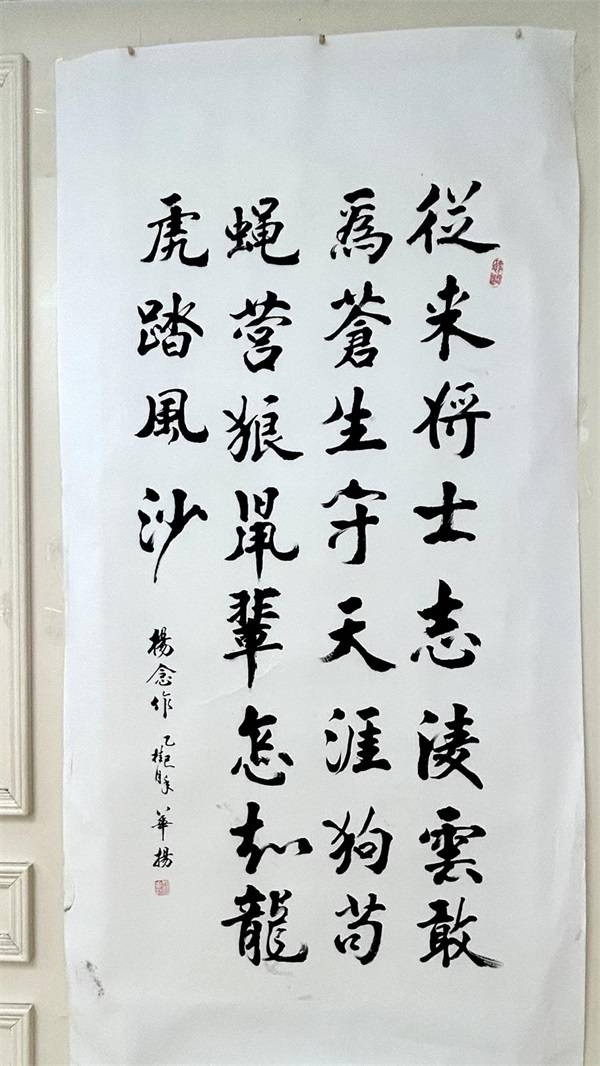 従来将士志凌雲敢
為蒼生守天涯狗苟
蝇营狼鼠輩怎知龍
虎踏風沙
楊念作 乙巳桂月 華揚